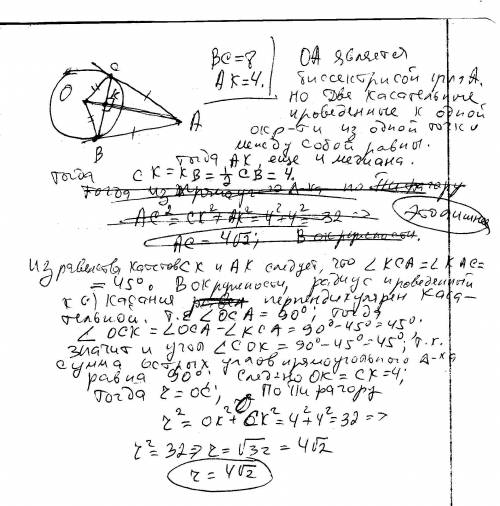 C
O
K
A
B
BC=8
AK=4.
OA является
биссектрисой угла A.
но две касательные
проведенные к одной
окр-ти из одной точки
между собой равны.
тогда AK, еще и медиана.
Тогда CK=KB=1/2 CB=4.
Тогда из прямоуг Δ-ка по Пифагору
AC²=CK²+AK²=4²+4²=32 =>
AC=4√2; В окружности.
Из равенства катетов CK и AK следует, что ∠KCA=∠KAC=
=45°. В окружности, радиус проведенный
к с) касания перпендикулярен каса-
тельной. т.е ∠OCA=90°; тогда
∠OCK=∠OCA-∠KCA=90°-45°=45°.
значит и угол ∠COK=90°-45°=45°, т.к.
сумма острых углов прямоугольного Δ-ка
равна 90°. Следно OK=CK=4;
Тогда r=OC; По Пифагору
r²=OK²+CK²=4²+4²=32 =>
r²=32 => r=√32=4√2
r=4√2